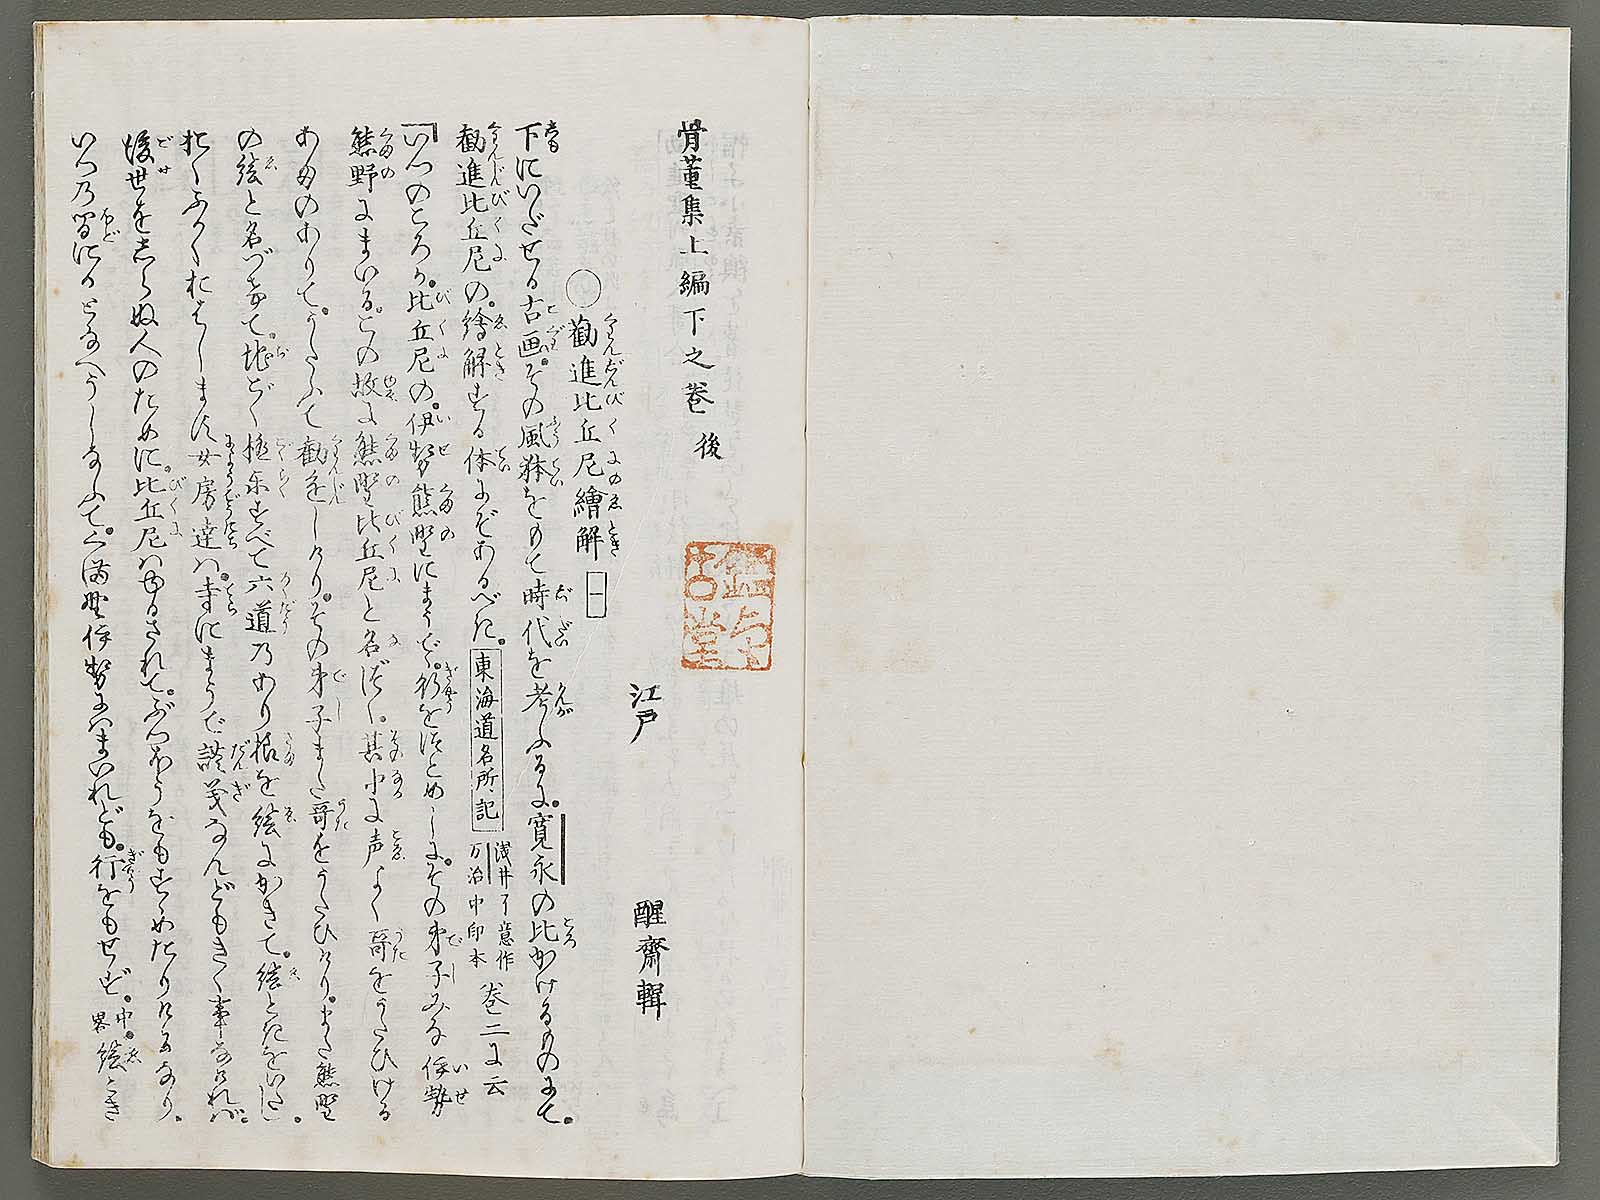 骨董集上編下之巻 後
江戸 醒齋輯
○勧進比丘尼繪解 一
下にいだせる古画。その風躰をもて時代を考ふるに。寛永の比かけるものにて。
勧進比丘尼の。繪解する体にぞあるべき。東海道名所記 浅井了意作 万治中印本 巻二に云
「いつのころか。比丘尼の。伊勢熊野にまうで。行をつとめしに。その弟子みな伊勢
熊野にまいる。この故に熊野比丘尼と名づく。其中に声よく哥をうたひける
あまのありて。うたふて勧進しけり。その弟子また哥をうたひけり。また熊野
の絵と名づけて。地ごく極楽すべて六道のあり様を絵にかきて。絵ときをいたす。
おくふかくおはします女房達は。寺にまうで談義なんどもきく事なければ。
後世をしらぬ人のために。比丘尼はゆるされて。ぶつほうをもすゝめたりけるなり。
いつの間にかとなへうしなふて。くま野伊勢にはまいれども。行をもせず。中畧 絵とき